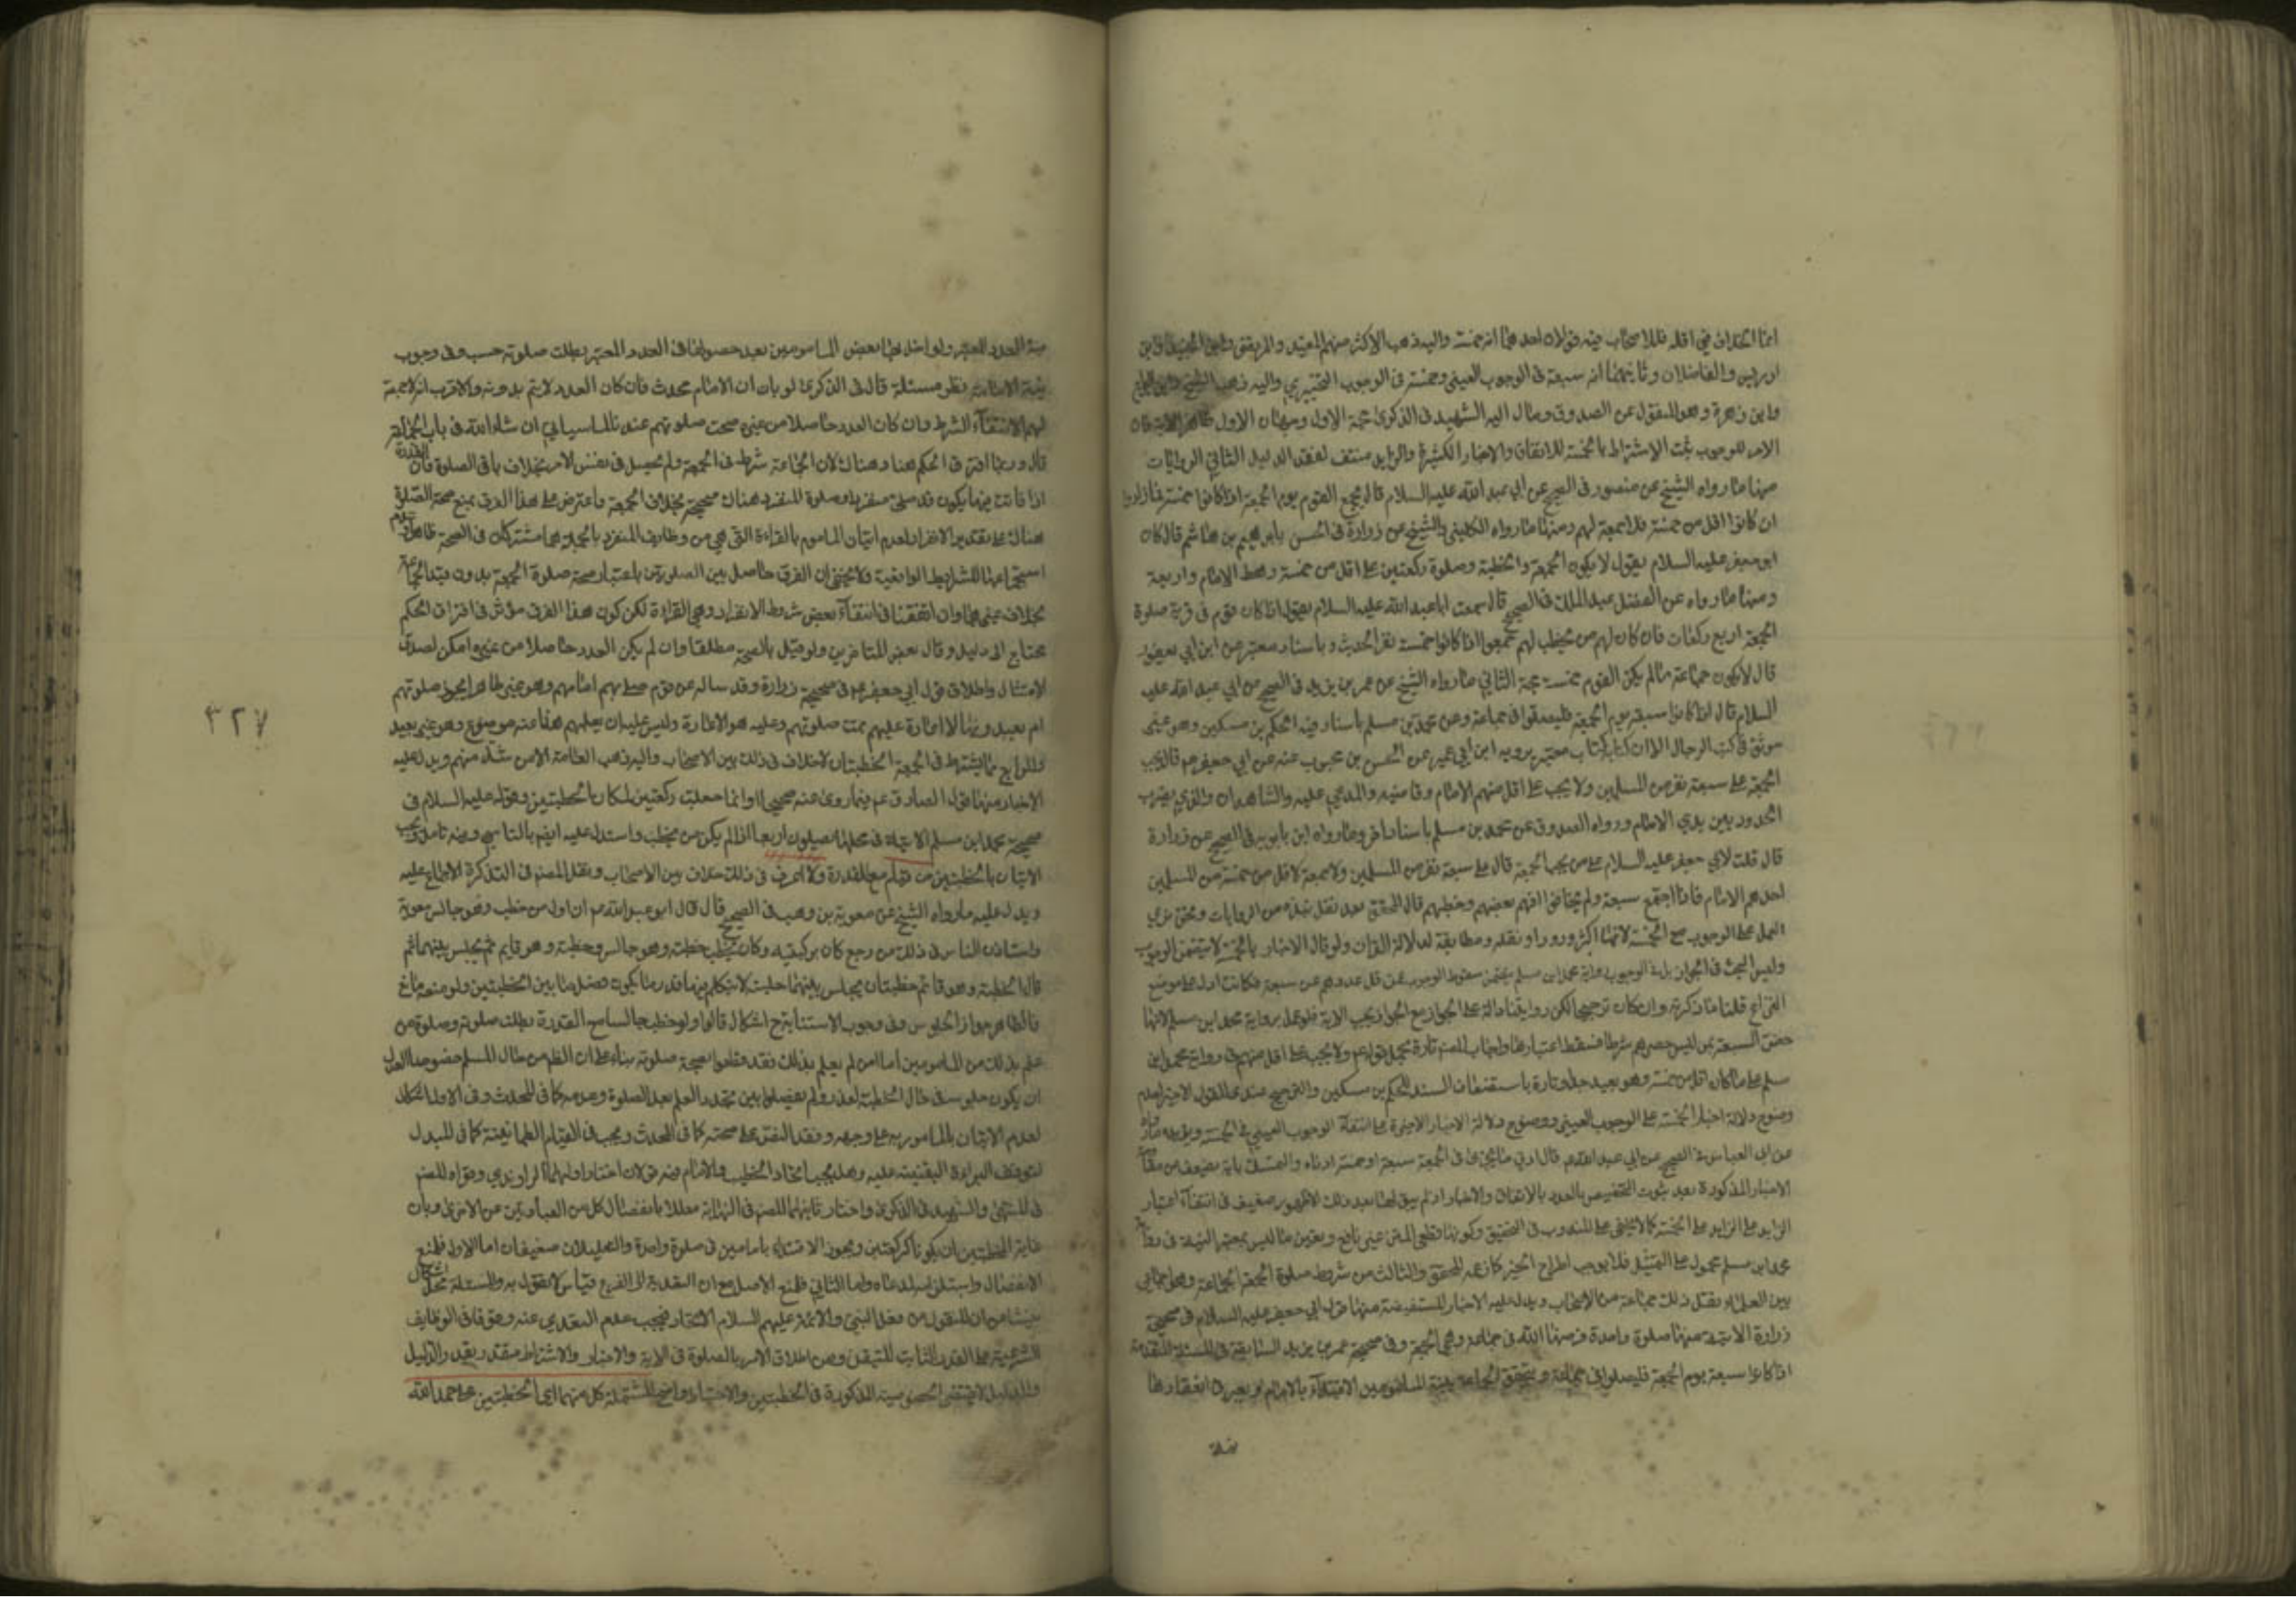 انما الخلاف في اقله فللاصحاب فيه قولان احدهما انه خمسة واليه ذهب الاكثر منهم المفيد والمرتضى وابن الجنيد وابن
ادريس والفاضلان وثانيهما انه سبعة في الوجوب العيني وخمسة في الوجوب التخييري واليه ذهب الشيخ وابن البراج
وابن زهرة وهو المنقول عن الصدوق ومال اليه الشهيد في الذكرى حجة الاول وجهان الاول ظاهر الاية فان
الامر للوجوب ثبت الاشتراط بالخمسة للاتفاق والاخبار الكثيرة والزايد منتف لفقد الدليل الثاني الروايات
منها ما رواه الشيخ عن منصور في الصحيح عن ابي عبد الله عليه السلام قال يجمع القوم يوم الجمعة اذا كانوا خمسة فما زادوا
ان كانوا اقل من خمسة فلا جمعة لهم ومنها ما رواه الكليني والشيخ عن زرارة في الحسن بابراهيم بن هاشم قال كان
ابو جعفر عليه السلام يقول لا يكون الجمعة والخطبة وصلوة ركعتين على اقل من خمسة رهط الامام واربعة
ومنها ما رواه عن الفضل عبد الملك في الصحيح قال سمعت ابا عبد الله عليه السلام يقول اذا كان قوم في قرية صلوة
الجمعة اربع ركعات فان كان لهم من يخطب لهم جمعوا اذا كانوا خمسة نفر الحديث وباسناد معتبر عن ابن ابي يعفور
قال لا يكون جماعة ما لم يكن القوم خمسة حجة الثاني ما رواه الشيخ عن عمر بن يزيد في الصحيح عن ابي عبد الله عليه
السلام قال اذا كانوا سبعة يوم الجمعة فليصلوا في جماعة وعن محمد بن مسلم باسناد فيه الحكم بن مسكين وهو غير
موثق في كتب الرجال الا ان له كتاب معتبر يرويه ابن ابي عمير عن الحسن بن محبوب عنه عن ابي جعفر عم قال يجب
الجمعة على سبعة نفر من المسلمين ولا يجب على اقل منهم الامام وقاضيه والمدعي عليه والشاهدان والذي يضرب
الحدود بين يدي الامام ورواه الصدوق عن محمد بن مسلم باسناد اخر وما رواه ابن بابويه في الصحيح عن زرارة
قال قلت لابي جعفر عليه السلام على من يجب الجمعة قال على سبعة نفر من المسلمين ولا جمعة لاقل من خمسة من المسلمين
احدهم الامام فاذا اجتمع سبعة ولم يخافوا امهم بعضهم وخطبهم قال المحقق بعد نقل نبذه من الروايات ونحن نرى
العمل على الوجوب مع الخمسة لانها اكثر ورودا ونقله ومطابقة لدلالة القران ولو قال الاخبار بالخمسة لا يتضمن الوجوب
وليس البحث في الجواز بل في الوجوب ورواية محمد ابن مسلم يتضمن سقوط الوجوب عمن قل عددهم عن سبعة فكانت ادل على موضع
النزاع قلنا ما ذكرته وان كان ترجيحا لكن روايتنا دالة على الجواز مع الجواز يجب الاية فلو عمل برواية محمد ابن مسلم لانها
حصر السبعة بمن ليس حصرهم شرطا فسقط اعتبارها واجاب المصنف تارة بحمل قوله عم ولا يجب على اقل منهم في رواية محمد ابن
مسلم على ما كان اقل من خمسة وهو بعيد جدا وتارة باستضعاف السند بالحكم بن مسكين والترجيح عندي للقول الاخير لعدم
وضوح دلالة اخبار الخمسة على الوجوب العيني ووضوح دلالة الاخبار الاخيرة على انتفاء الوجوب العيني في الخمسة ويؤيده ما رواه
عن ابي العباس في الصحيح عن ابي عبد الله عم قال ادنى ما يجزي في الجمعة سبعة او خمسة ادناه والتمسك باية
الاخبار المذكورة بعد ثبوت التخصيص بالعدد بالاتفاق والاخبار اذ لم يبق لها بعد ذلك ظهور ضعيف في انتفاء اعتبار
الزايد على الخمسة كما لا يخفى على المتدرب في التحقيق وكونها قطعي المتن غير نافع وتعيين ما ليس بمعتبر البتة في رواية
محمد ابن مسلم محمول على التمثيل فلا يوجب اطراح الخبر كما زعمه المحقق والثالث من شرط صلوة الجمعة الجماعة وهو اجماعي
بين العلماء نقل ذلك جماعة من الاصحاب ويدل عليه الاخبار المستفيضة منها قول ابي جعفر عليه السلام في صحيحة
زرارة الاتية منها صلوة واحدة فرضها الله في جماعة وهي الجمعة وفي صحيحة عمر بن يزيد السابقة في المسئلة المتقدمة
اذا كانوا سبعة يوم الجمعة فليصلوا في جماعة ويتحقق الجماعة بنية المامومين الاقتداء بالامام ويعتبر في انعقادها
نية
نية العدد المعتبر ولو اخل بها بعض المامومين بعد حصولها في العدد المعتبر بطلت صلوته حسب وفي وجوب
نية الامامة نظر مسئلة قال في الذكرى لو بان ان الامام محدث فان كان العدد لا يتم بدونه والاقرب انه لا جمعة
لهم لانتفاء الشرط وان كان العدد حاصلا من غيره صحت صلوتهم عندنا لما سياتي ان شاء الله في باب الجماعة
قال وربما افترق الحكم هنا وهناك لان الجماعة شرط في الجمعة ولم يحصل في نفس الامر بخلاف باقي الصلوة فان القدوة
اذا فاتت فيها يكون قد صلى منفردا وصلوة المنفرد هناك صحيحة بخلاف الجمعة واعترض على هذا الفرق بمنع صحة الصلوة
هناك على تقدير الانفراد لعدم اتيان الماموم بالقراءة التي هي من وظايف المنفرد بالجملة هما مشتركان في الصحة ظاهرا وعدم
استجماعهما للشرايط الواقعية ولا يخفى ان الفرق حاصل بين الصلوتين باعتبار صحة صلوة الجمعة بدون قيد الجماعة
بخلاف غيرها وان اتفقنا في انتفاء بعض شروط الانفراد وهي القراءة لكن كون هذا الفرق مؤثر في افتراق الحكم
يحتاج الى دليل وقال بعض المتاخرين ولو قيل بالصحة مطلقا وان لم يكن العدد حاصلا من غيره امكن لصدق
الامتثال واطلاق قول ابي جعفر عم في صحيحة زرارة وقد ساله عن قوم صلى بهم امامهم وهو غير طاهر ايجوز صلوتهم
ام يعيدونها لا اعادة عليهم تمت صلوتهم وعليه هو الاعادة وليس عليه ان يعلمهم هذا عنه موضوع وهو غير بعيد
والرابع مما يشترط في الجمعة الخطبتان لا خلاف في ذلك بين الاصحاب واليه ذهب العامة الا من شذ منهم ويدل عليه
الاخبار منها قول الصادق عم فيما روى عنه صحيحا وانما جعلت ركعتين لمكان الخطبتين وقوله عليه السلام في
صحيحة محمد ابن مسلم الاتية في محلها يصلون اربعا اذا لم يكن من يخطب واستدل عليه ايضا بالتاسي وفيه تامل ويجب
الاتيان بالخطبتين من قيام مع القدرة ولا اعرف في ذلك خلاف بين الاصحاب ونقل المصنف في التذكرة الاجماع عليه
ويدل عليه ما رواه الشيخ عن معوية بن وهب في الصحيح قال قال ابو عبد الله عم ان اول من خطب وهو جالس معوية
واستاذن الناس في ذلك من وجع كان بركبتيه وكان يخطب خطبة وهو جالس وخطبة وهو قايم ثم يجلس بينهما ثم
قال الخطبة وهو قائم خطبتان يجلس بينهما جلسة لا يتكلم فيها قدر ما يكون فصل ما بين الخطبتين ولو منعه مانع
فالظاهر جواز الجلوس وفي وجوب الاستنابة ح اشكال قالوا ولو خطب جالسا مع القدرة بطلت صلوته وصلوة من
علم بذلك من المامومين اما من لم يعلم بذلك فقد قطعوا بصحة صلوته بناء على ان الظاهر من حال المسلم خصوصا العدل
ان يكون جلوسه في حال الخطبة لعذر ولم يفصلوا بين تجدد العلم بعد الصلوة وعدمه كما في المحدث وفي الاول اشكال
لعدم الاتيان بالمامور به على وجهه وفقد النص على صحته كما في المحدث ويجب في القيام الطمانينة كما في المبدل
لتوقف البراءة اليقينية عليه وهل يجب اتحاد الخطيب والامام فيه قولان اختار اولهما الراوندي وقواه المصنف
في المنتهى والشهيد في الذكرى واختار ثانيهما المصنف في النهاية معللا بانفصال كل من العبادتين عن الاخرى وبان
غاية الخطبتين ان يكونا كركعتين ويجوز الاقتداء بامامين في صلوة واحدة والتعليلان ضعيفان اما الاول فلمنع
الانفصال واستلزامه لمدعاه واما الثاني فلمنع الاصل مع ان التعدية الى الفرع قياس لا نقول به والمسئلة محل اشكال
ينشا من ان المنقول من فعل النبي والائمة عليهم السلام الاتحاد فيجب عدم التعدي عنه وقوفا في الوظايف
الشرعية على القدر الثابت المتيقن ومن اطلاق الامر بالصلوة في الاية والاخبار والاشتراط مقتدر بقدر والدليل
والدليل لا يقتضي الخصوصية المذكورة في الخطبتين والاعتبار واضح المشتملة كل منهما اي الخطبتين على حمد الله
٣٢٧